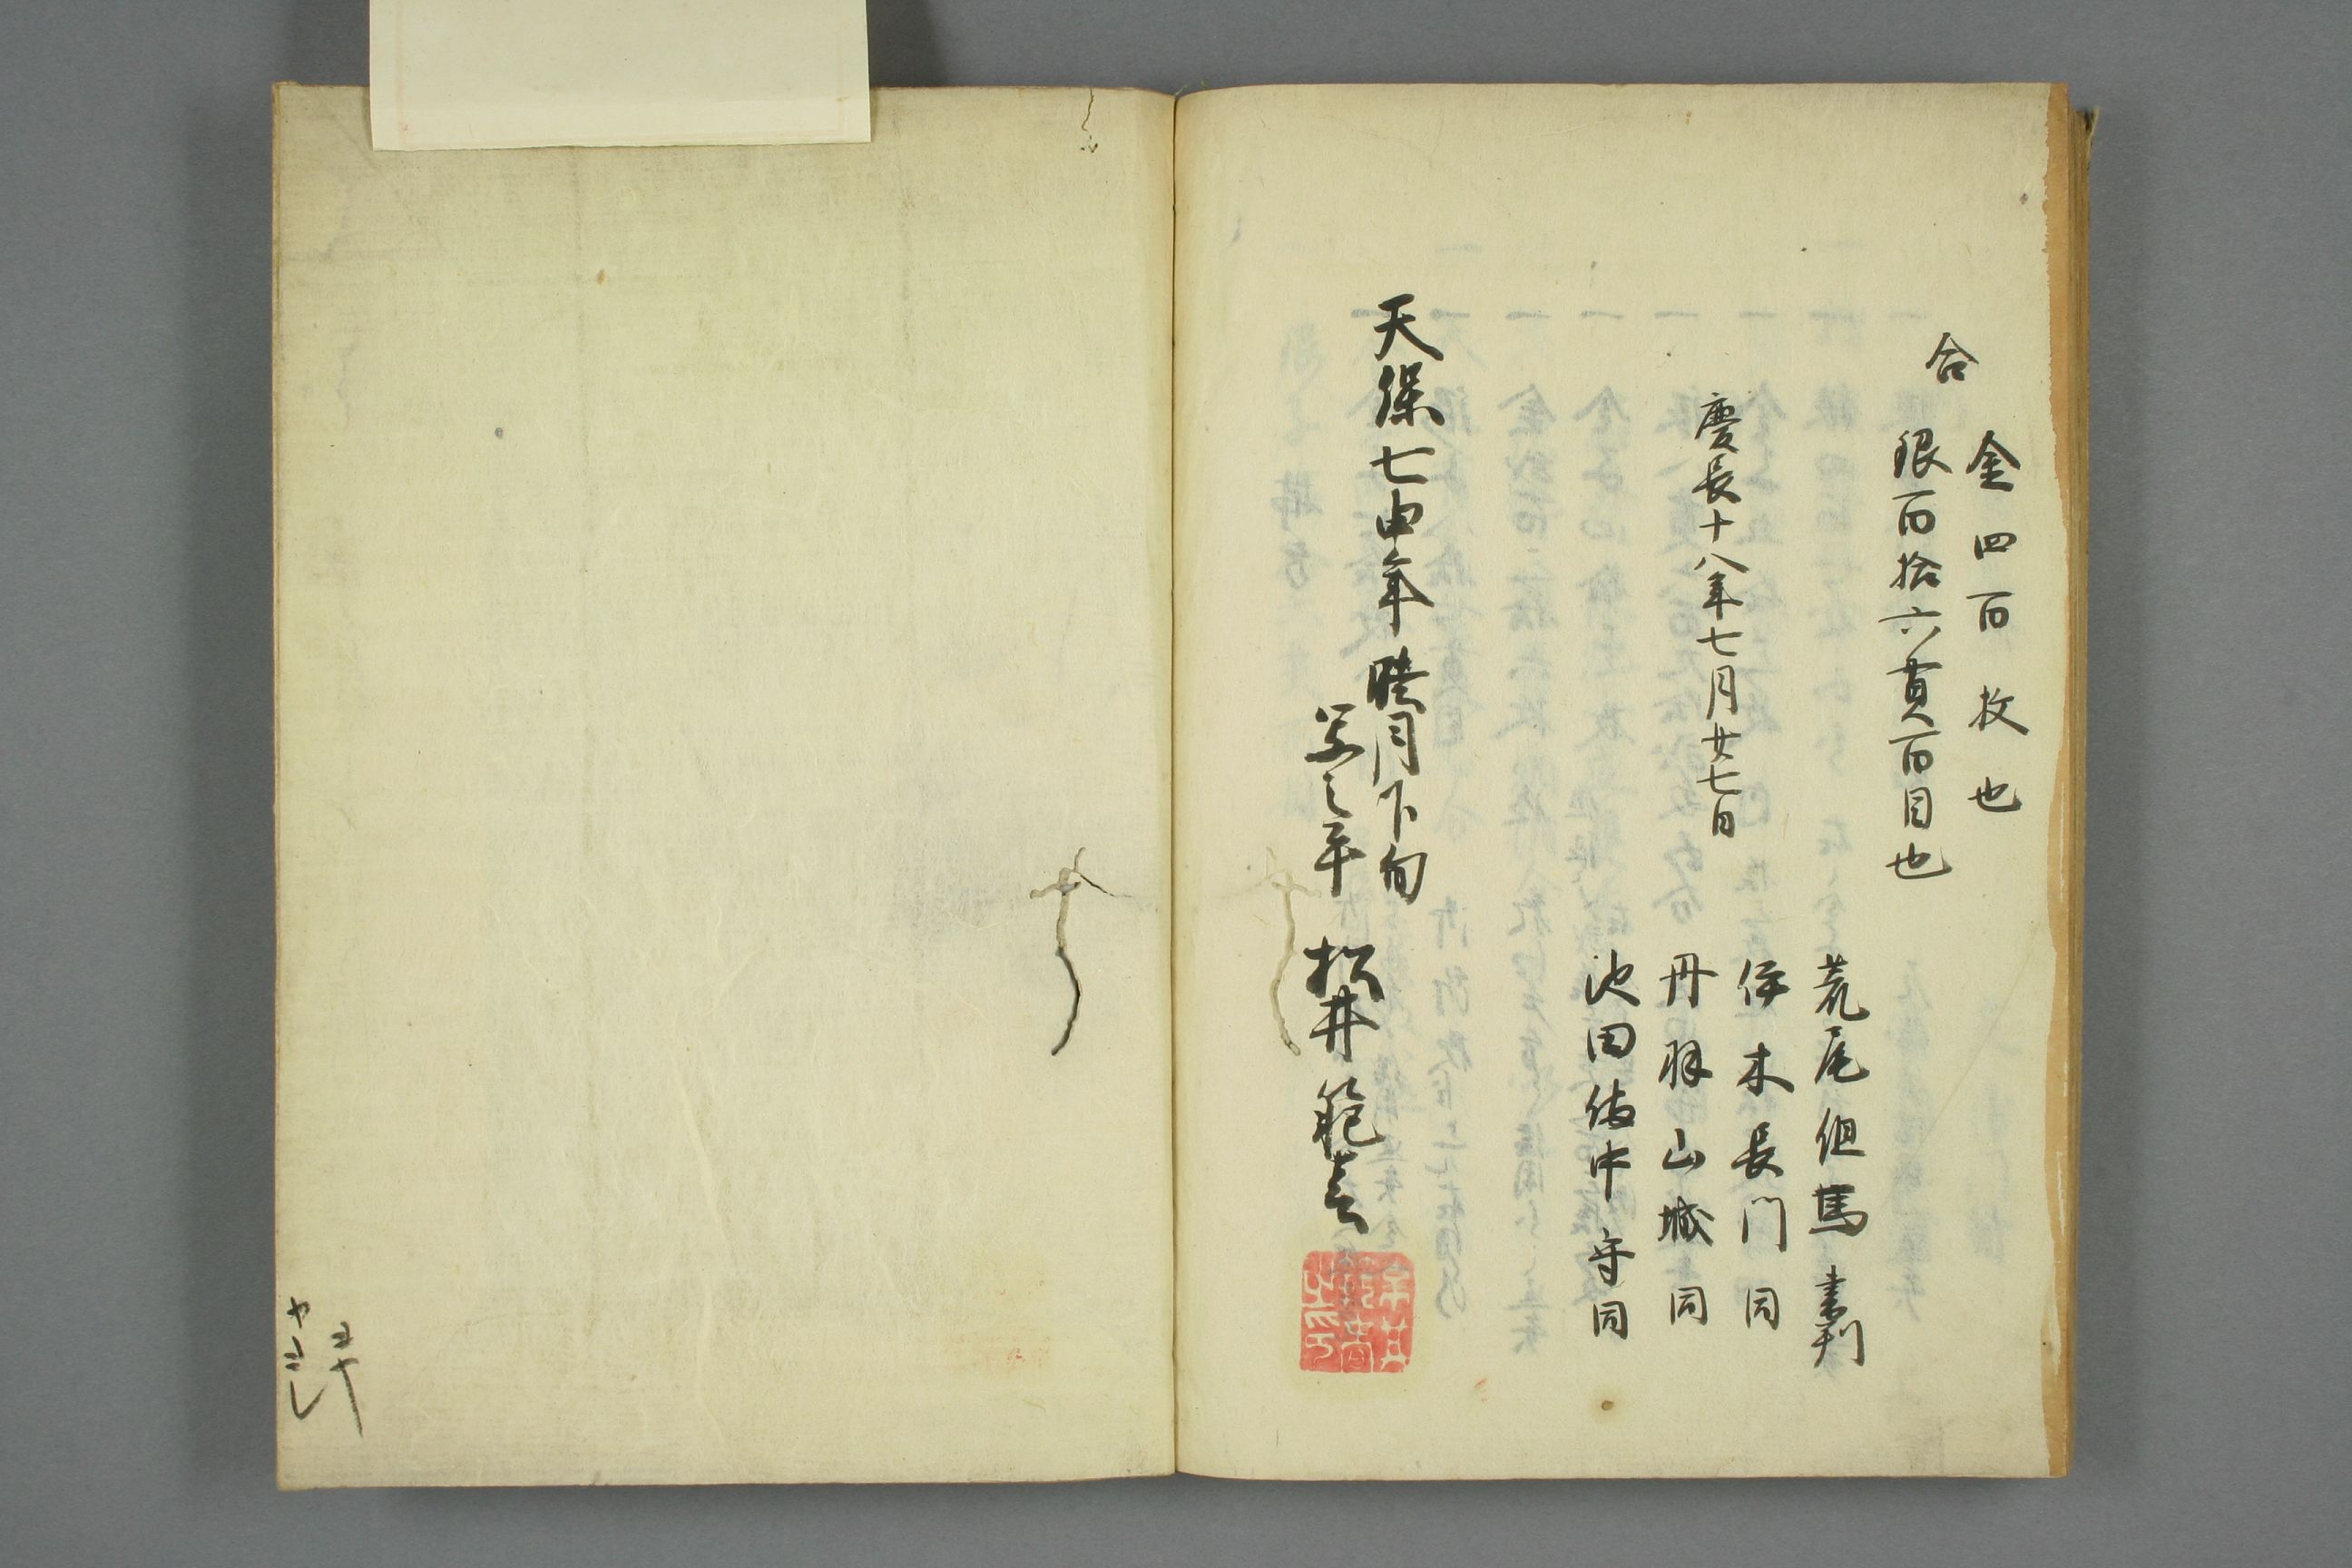 合
金四百枚也
銀百拾六貫百目也
慶長十八年七月廿七日
荒尾但馬書判
伊木長門同
丹羽山城同
池田備中守同
天保七申年 睦月下旬
写之畢 松井